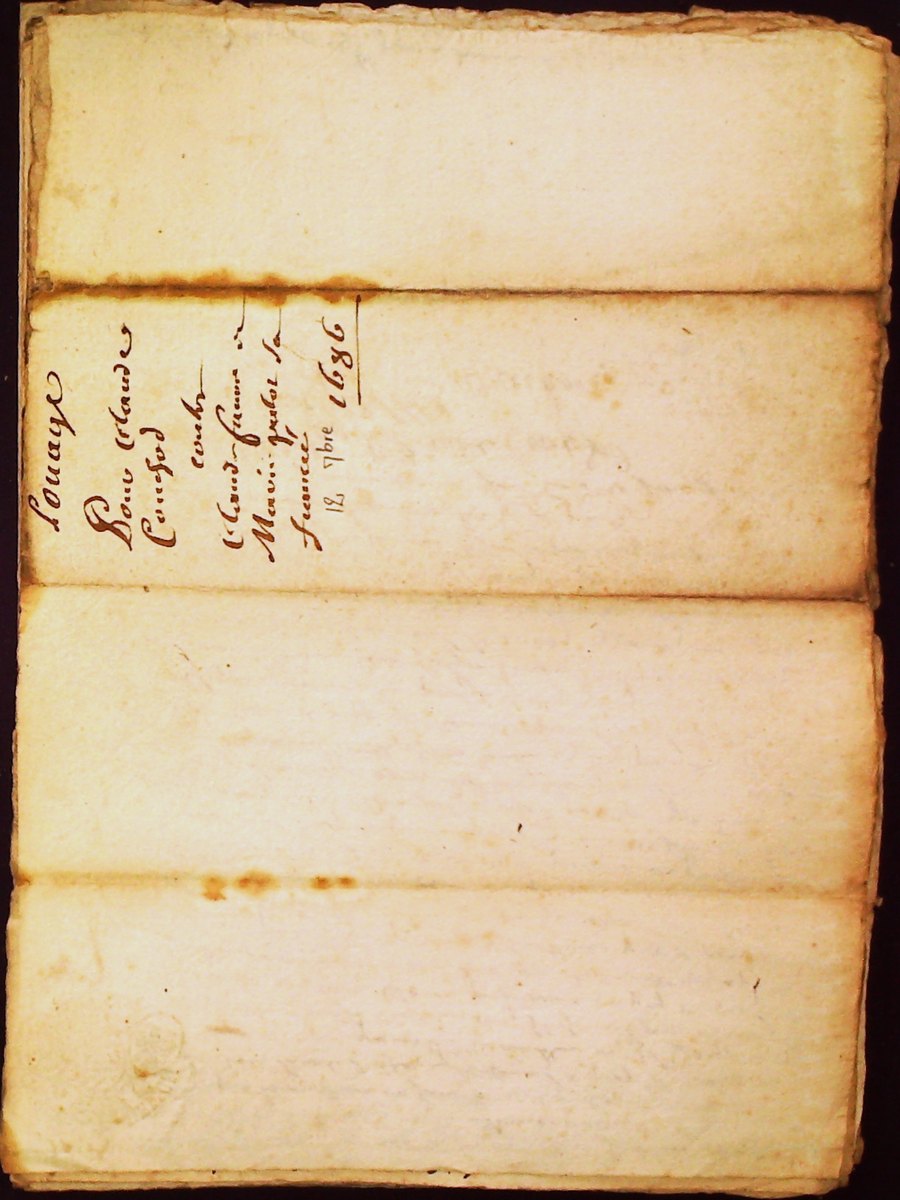 Louage
Pour Claude
Couchod
contre
Claude famme et
Marie sa
famme
12 7bre 1686